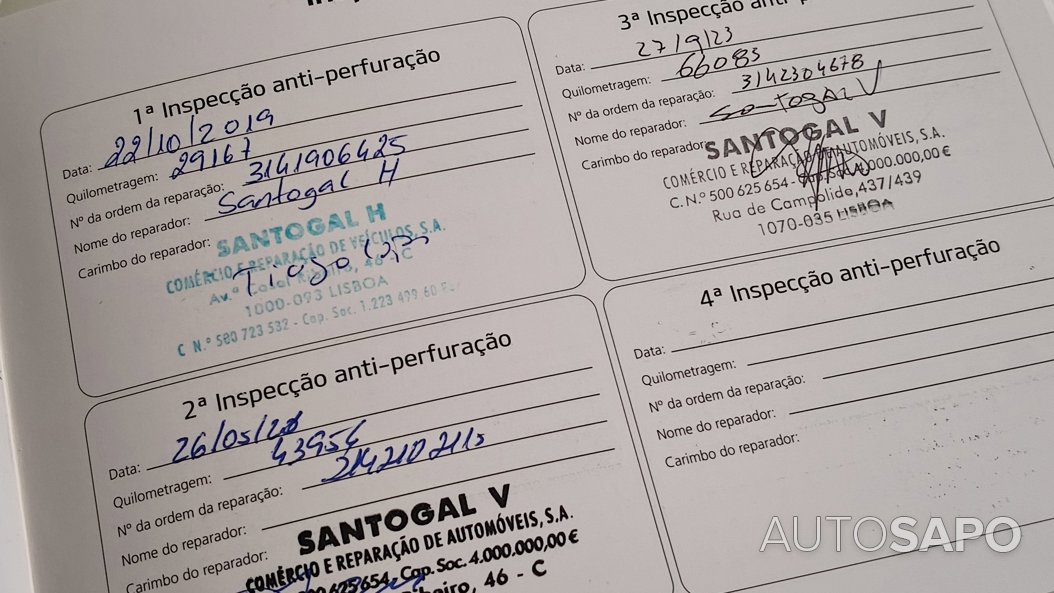 1ª Inspecção anti-perfuração
Data: 22/10/2019
Quilometragem: 29167
Nº da ordem da reparação: 3141906425
Nome do reparador: Santogal H
Carimbo do reparador:
SANTOGAL H
COMÉRCIO E REPARAÇÃO DE VEÍCULOS, S.A.
Tiago
Av.ª 46 - C
1000-093 LISBOA
C N.º 580 723 532 - Cap. Soc. 1.223 479 60
2ª Inspecção anti-perfuração
Data: 26/05/
Quilometragem: 43954
Nº da ordem da reparação:
Nome do reparador:
Carimbo do reparador:
SANTOGAL V
COMÉRCIO E REPARAÇÃO DE AUTOMÓVEIS, S.A.
500 625 654 - Cap. Soc. 4.000.000,00 €
46 - C
3ª Inspecção
Data: 27/9/23
Quilometragem: 66083
Nº da ordem da reparação: 3142304678
Nome do reparador: Santogal V
Carimbo do reparador
SANTOGAL V
COMÉRCIO E REPARAÇÃO DE AUTOMÓVEIS, S.A.
C. N.º 500 625 654 - Cap. Soc. 4.000.000,00 €
Rua de Campolide, 437/439
1070-035 LISBOA
4ª Inspecção anti-perfuração
Data:
Quilometragem:
Nº da ordem da reparação:
Nome do reparador:
Carimbo do reparador:
AUTOSAPO